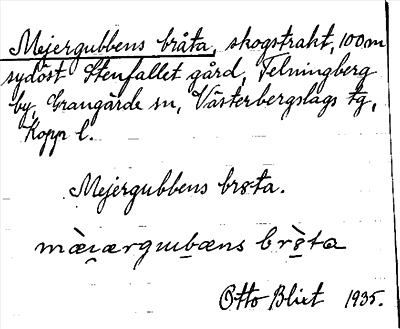 Mejergubbens bråta, skogstrakt, 100 m
sydöst Stenfallet gård, Telningberg
by, Grangärde sn, Västerbergslags tg,
Kopp l.
Mejergubbens brs̱ta.
Otto Blixt 1935.